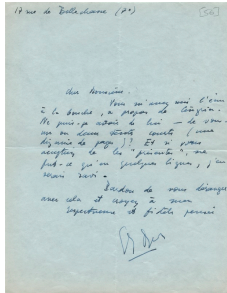 17 rue de Bellechasse (7e)
[56]
cher Monsieur.
Vous m'avez mis l'eau
à la bouche, à propos de
Ne puis-je avoir de lui — de vous
un ou deux textes courts (une
dizaine de pages)? Et si vous
acceptiez de les "présenter", ne
fut-ce qu'en quelques lignes, j'en
serais ravi.
Pardon de vous déranger
avec cela et croyez à mon
respectueuse et fidèle pensée